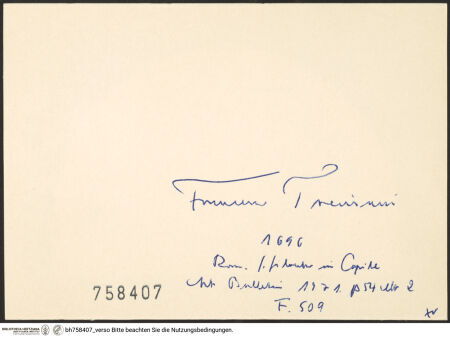 Francesco Trevisani
1696
Rom. S. Silvestro in Capite
Art Bulletin 1971. p 54 Abb 2
F. 509
758407
BIBLIOTHECA HERTZIANA bh758407_verso Bitte beachten Sie die Nutzungsbedingungen.